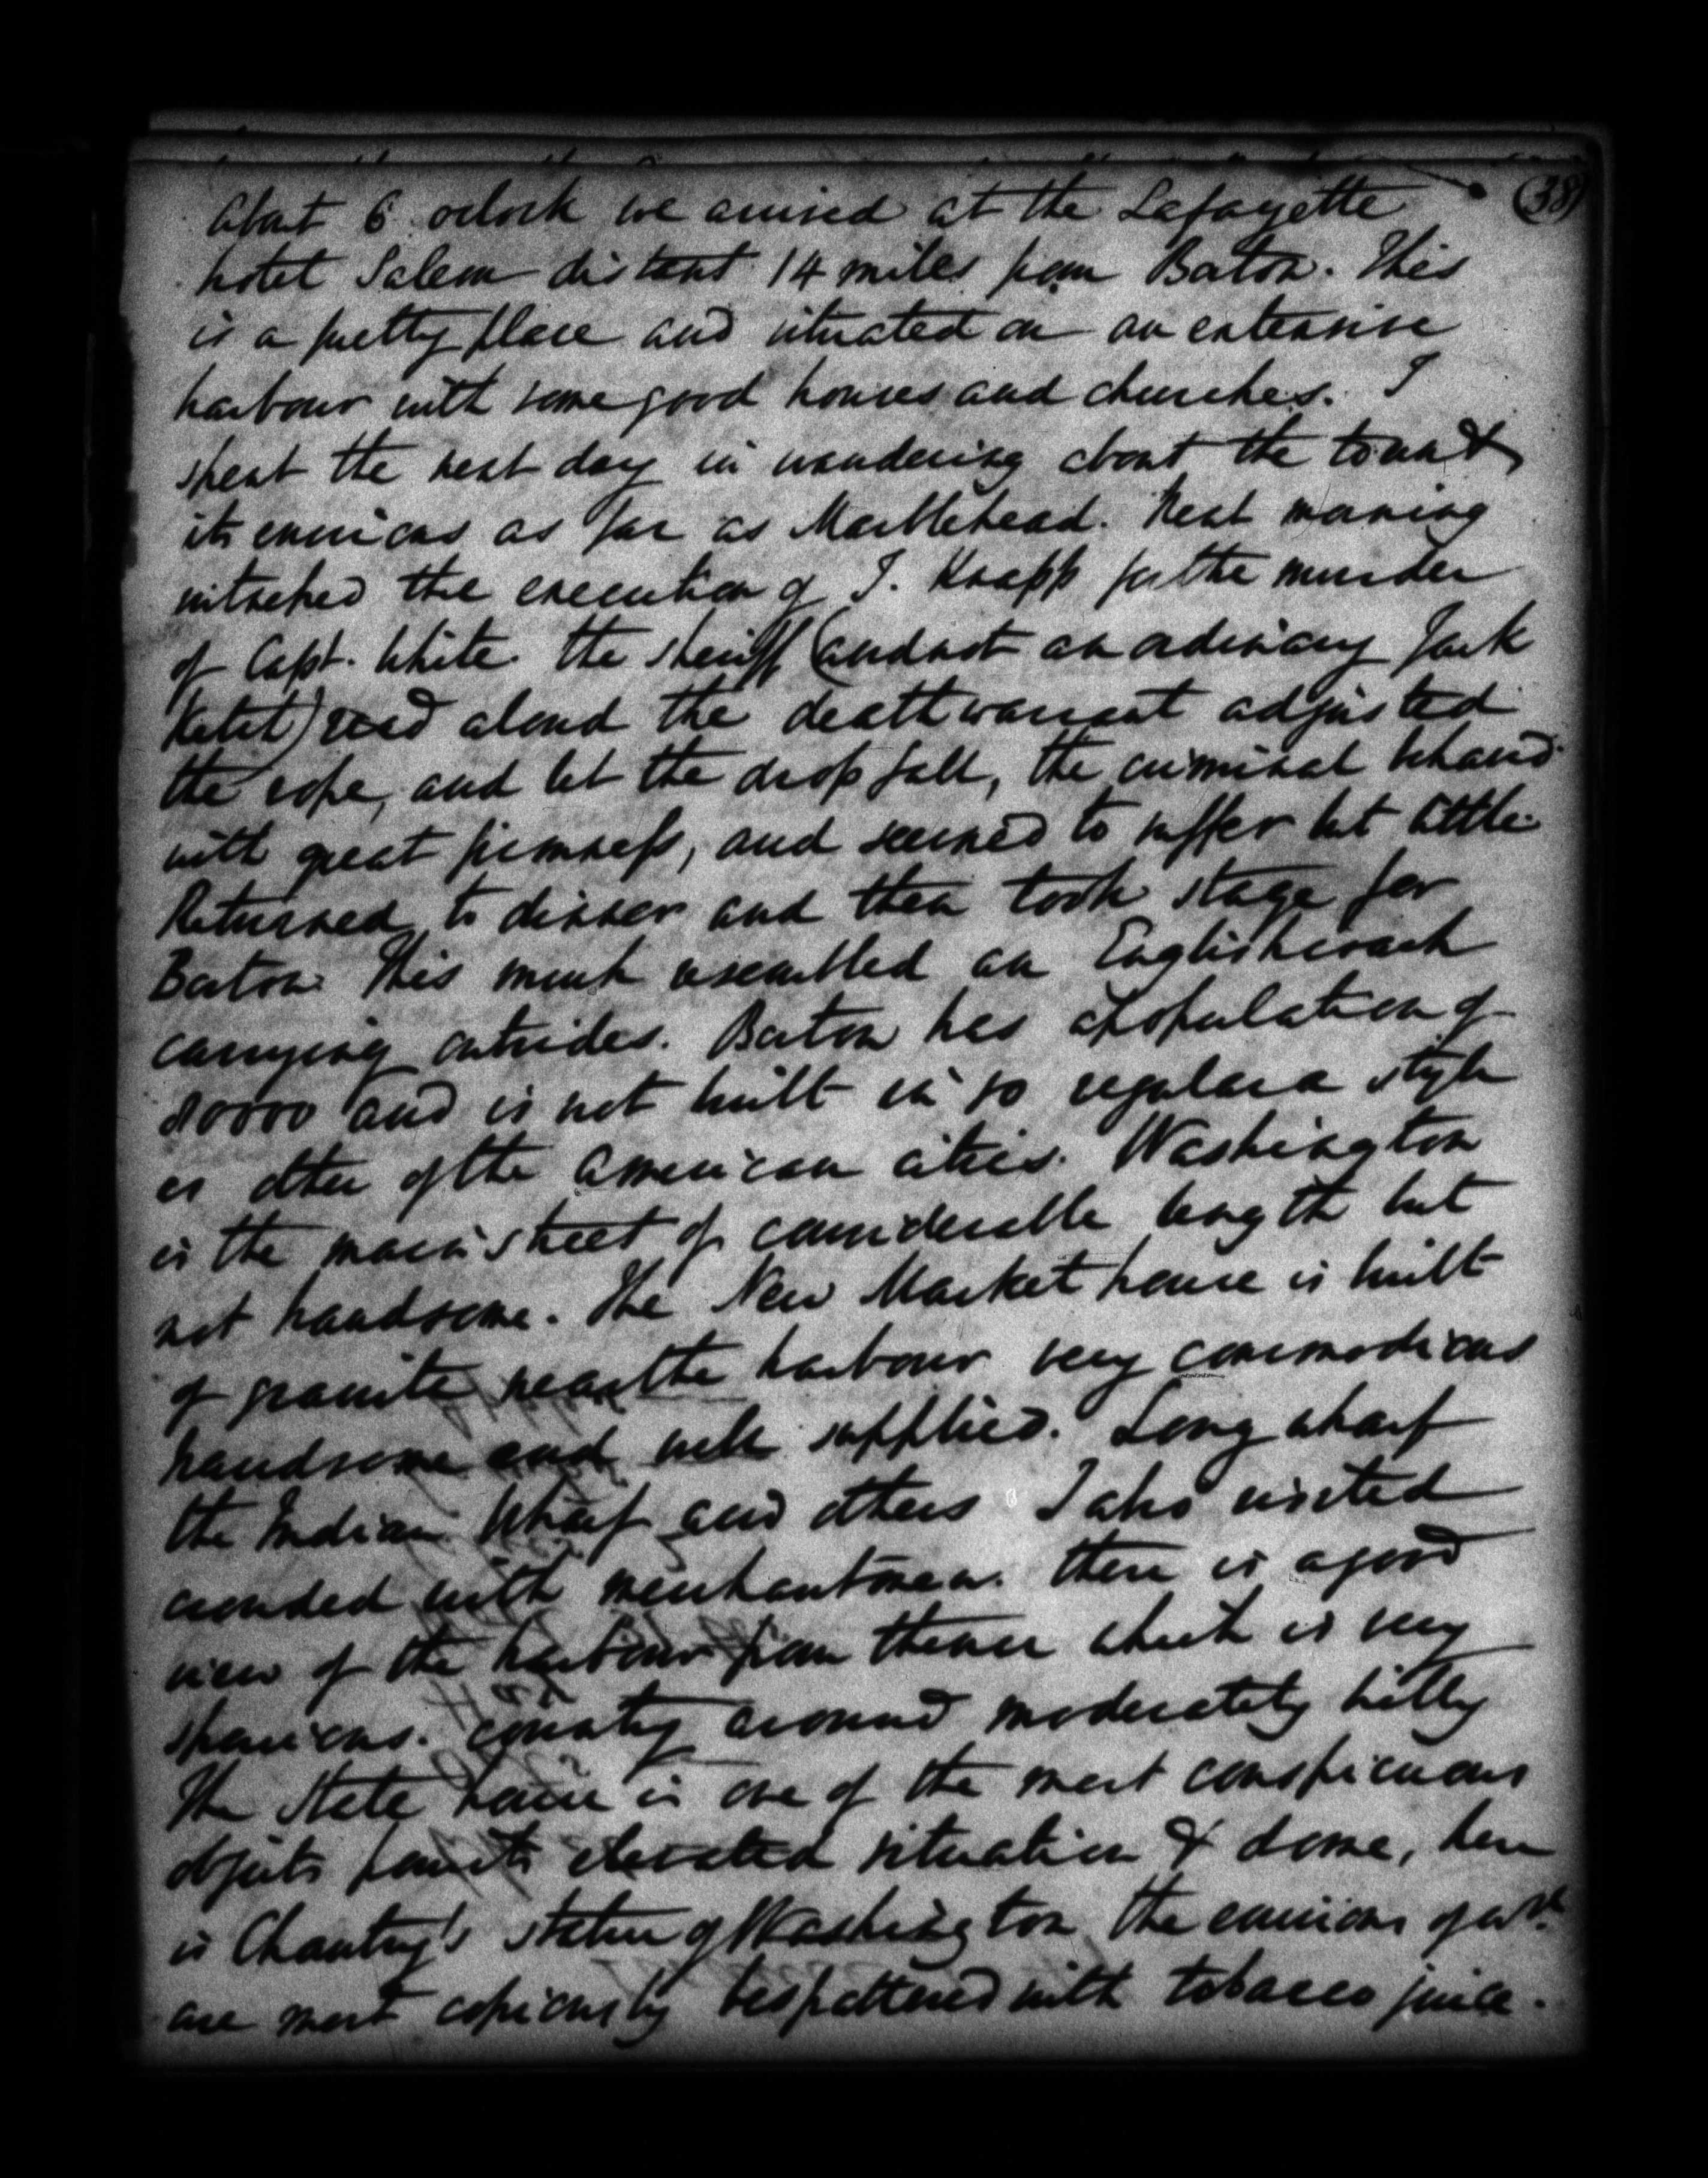 (38)
About 6 oclock we arrived at the Lafayette
hotel Salem distant 14 miles from Boston. This
is a pretty place and situated on an extensive
harbour with some good houses and churches. I
spent the next day in wandering about the town &
its environs as far as Marblehead. Next morning
witnessed the execution of J. Knapp for the murder
of Capt. White. the sheriff (and not an ordinary Jack
Ketch) read aloud the death warrant adjusted
the rope, and let the drop fall, the criminal behaved
with great firmness, and seemed to suffer but little.
Returned to dinner and then took stage for
Boston. This much resembled an English coach
carrying outsides. Boston has a population of
80000 and is not built in so regular a style
as other of the American cities. Washington
is the main street of considerable length but
not handsome. The New Market house is built
of granite near the harbour very commodious
handsome and well supplied. Long wharf
the Indian Wharf and others I also visited
crowded with merchantmen. there is a good
view of the harbour from thence which is very
spacious. country around moderately hilly
The State house is one of the most conspicuous
objects from its elevated situation & dome, here
is Chantry's statue of Washington the environs of wh.
are most copiously bespattered with tobacco juice.